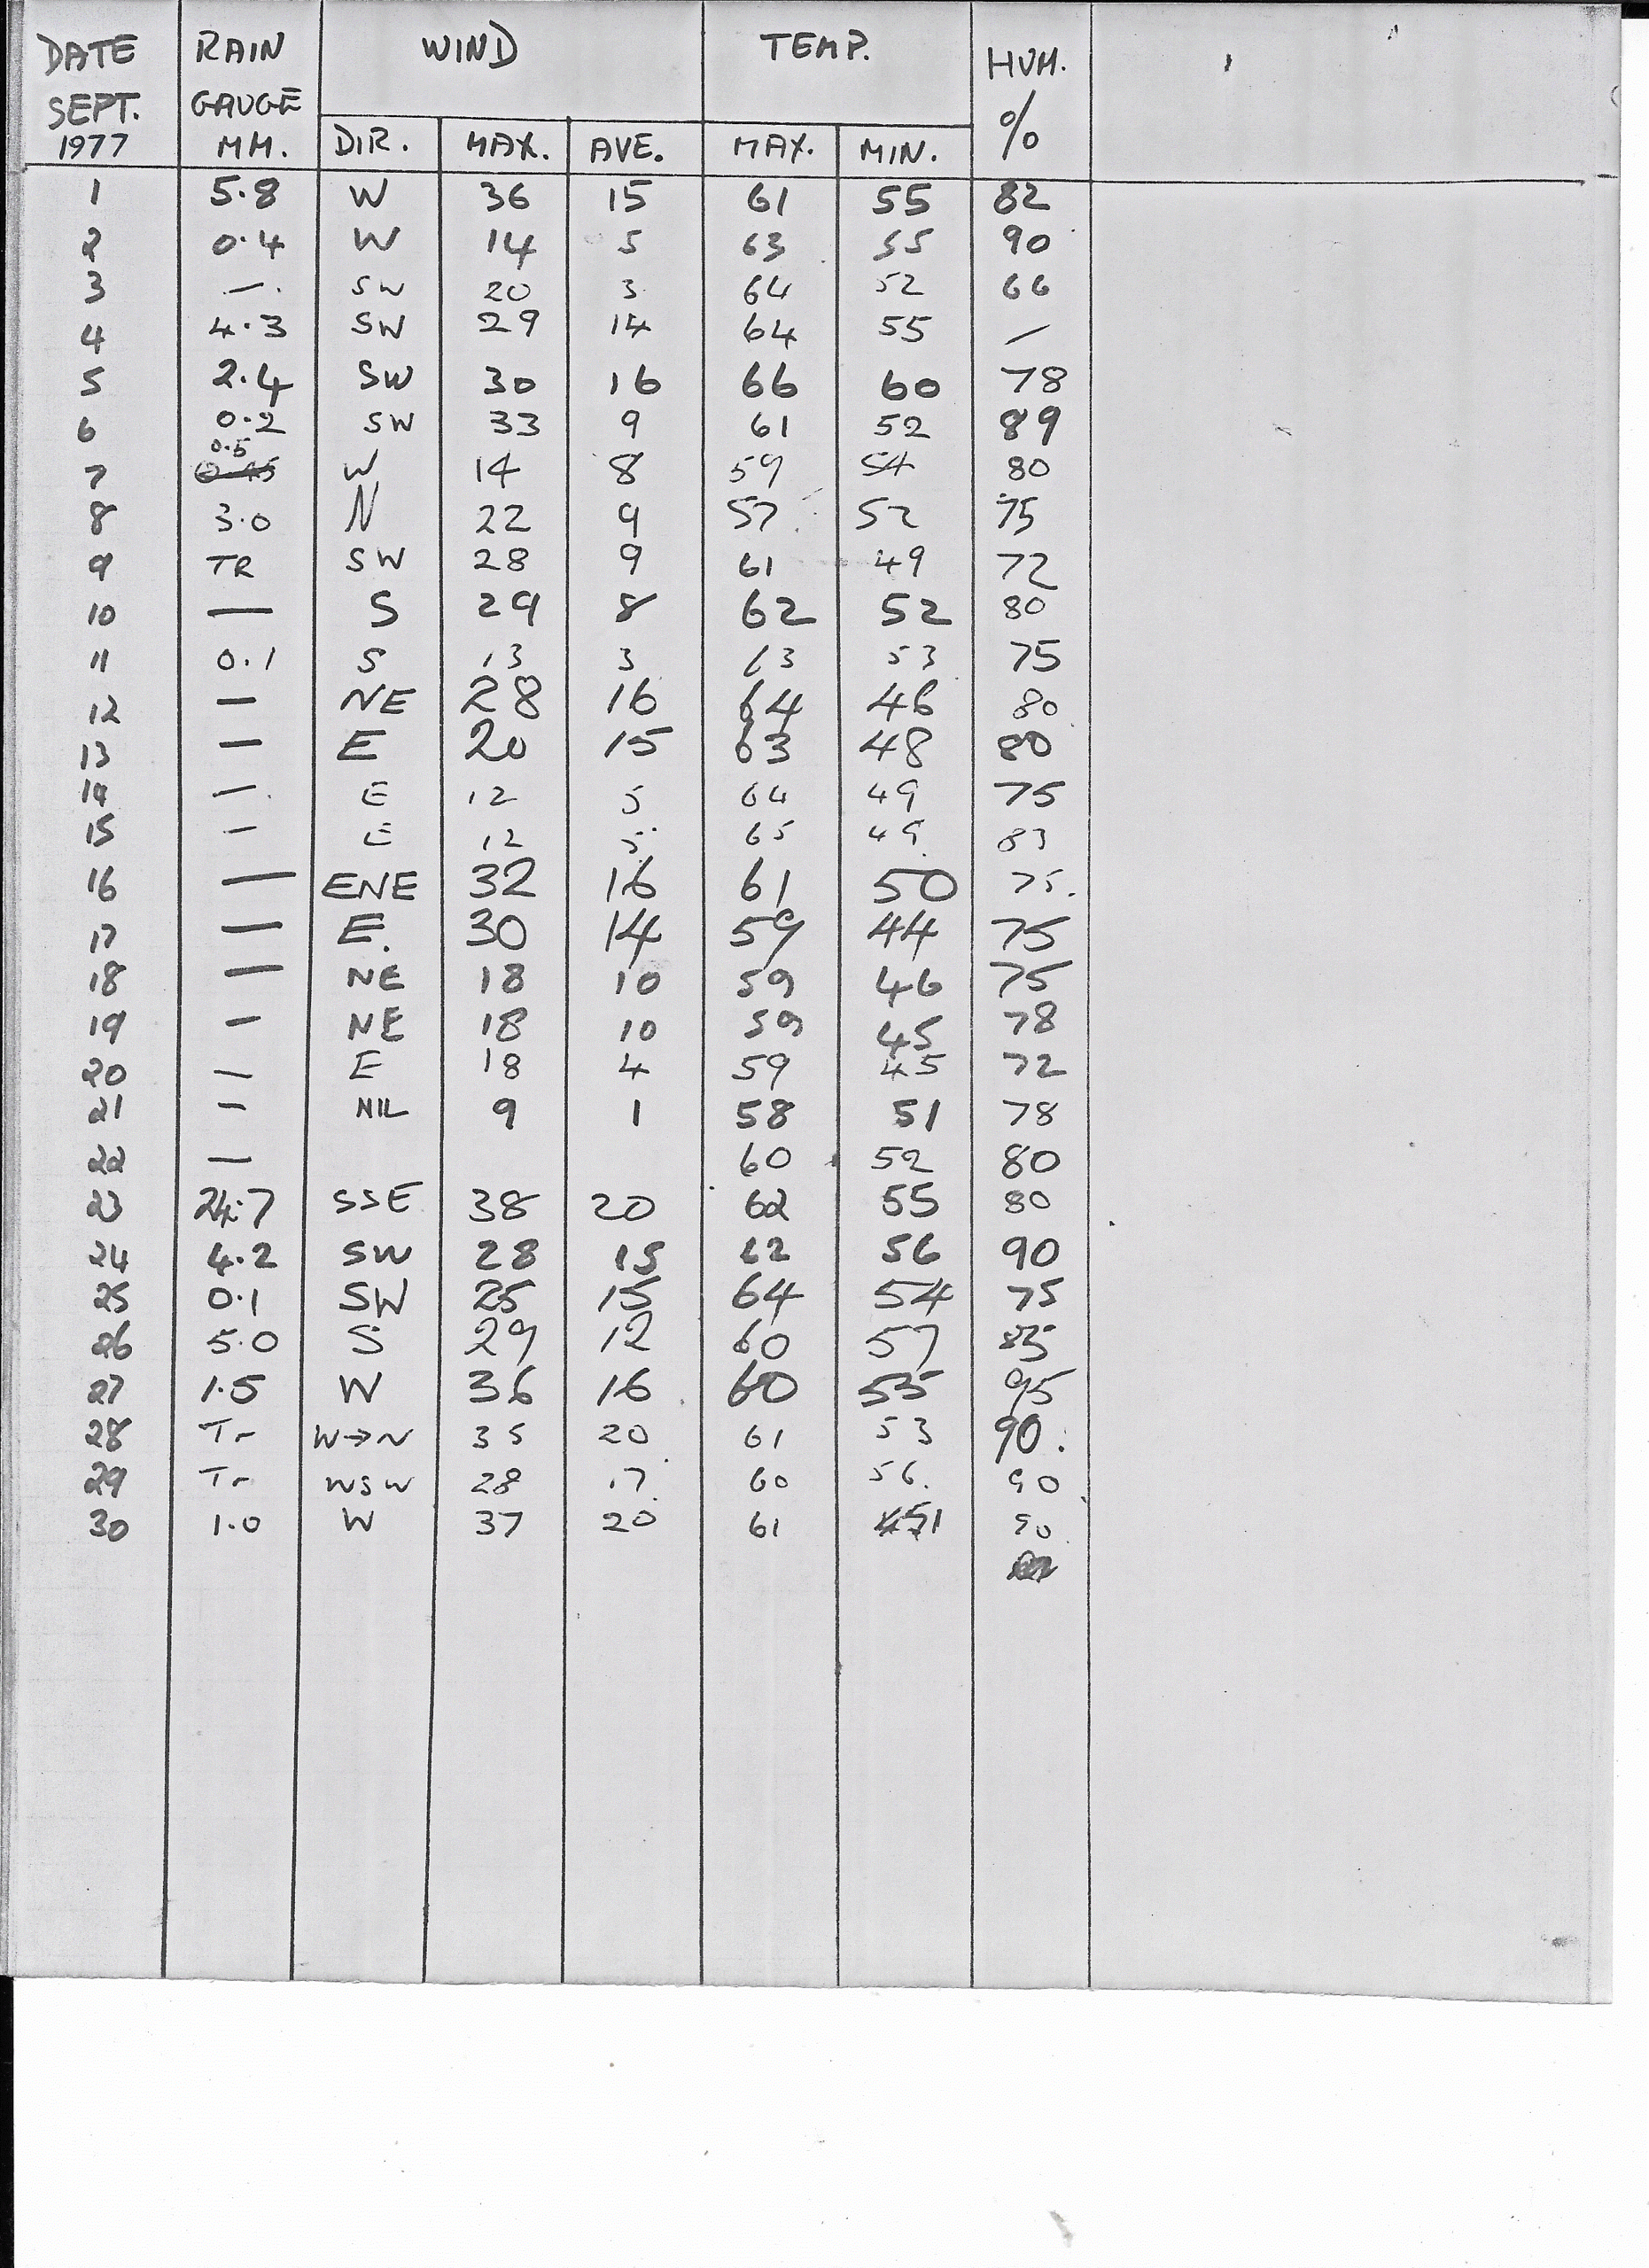 DATE RAIN WIND TEMP. HUM.
SEPT. GAUGE %
1977 MM. DIR. MAX. AVE. MAX. MIN.
1 5.8 W 36 15 61 55 82
2 0.4 W 14 5 63 55 90
3 — SW 20 3 64 52 66
4 4.3 SW 29 14 64 55 —
5 2.4 SW 30 16 66 60 78
6 0.2 SW 33 9 61 52 89
7 0.5 W 14 8 59 54 80
8 3.0 N 22 9 57 52 75
9 TR SW 28 9 61 49 72
10 — S 29 8 62 52 80
11 0.1 S 13 3 63 53 75
12 — NE 28 16 64 46 80
13 — E 20 15 63 48 80
14 — E 12 5 64 49 75
15 — E 12 5 65 49 83
16 — ENE 32 16 61 50 75.
17 — E. 30 14 59 44 75
18 — NE 18 10 59 46 75
19 — NE 18 10 59 45 78
20 — E 18 4 59 45 72
21 — NIL 9 1 58 51 78
22 — 60 52 80
23 24.7 SSE 38 20 62 55 80
24 4.2 SW 28 15 62 56 90
25 0.1 SW 25 15 64 54 75
26 5.0 S 29 12 60 57 85
27 1.5 W 36 16 60 55 95
28 Tr W→N 35 20 61 53 90.
29 Tr WSW 28 17 60 56. 90
30 1.0 W 37 20 61 51 90